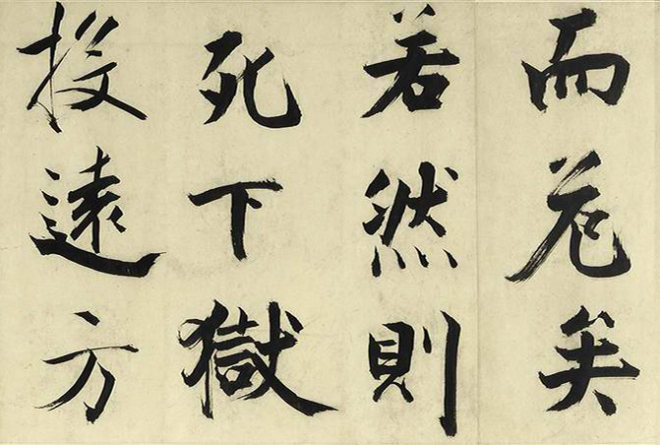 而危矣
若然則
死下獄
投遠方